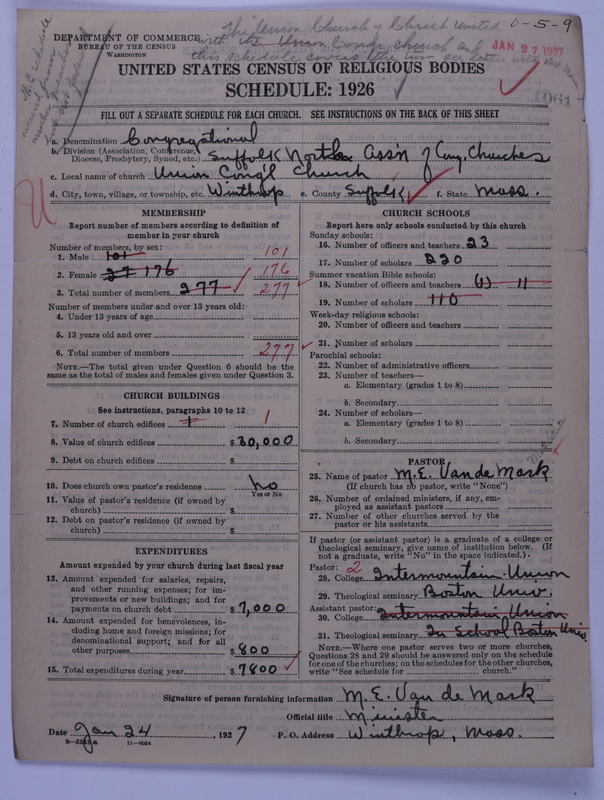 The Union Church of Christ United 0-5-9
DEPARTMENT OF COMMERCE
with the Union Cong. Church and
BUREAU OF THE CENSUS
JAN 27 1927
WASHINGTON
this schedule covers the two see letter with
M. E. schedule
UNITED STATES CENSUS OF RELIGIOUS BODIES
SCHEDULE: 1926
1061
FILL OUT A SEPARATE SCHEDULE FOR EACH CHURCH. SEE INSTRUCTIONS ON THE BACK OF THIS SHEET
a. Denomination Congregational
b. Division (Association, Conference, Diocese, Presbytery, Synod, etc.) Suffolk North Ass'n of Cong. Churches
c. Local name of church Union Cong'l Church
d. City, town, village, or township, etc. Winthrop e. County Suffolk f. State Mass.
MEMBERSHIP
Report number of members according to definition of
member in your church
Number of members, by sex:
1. Male 101 101
2. Female 27 176 176
3. Total number of members 277 277
Number of members under and over 13 years old:
4. Under 13 years of age
5. 13 years old and over
6. Total number of members 277
NOTE.—The total given under Question 6 should be the
same as the total of males and females given under Question 3.
CHURCH BUILDINGS
See instructions, paragraphs 10 to 12
7. Number of church edifices 1 1
8. Value of church edifices $ 30,000
9. Debt on church edifices $
10. Does church own pastor's residence No
Yes or No
11. Value of pastor's residence (if owned by
church) $
12. Debt on pastor's residence (if owned by
church) $
EXPENDITURES
Amount expended by your church during last fiscal year
13. Amount expended for salaries, repairs,
and other running expenses; for im-
provements or new buildings; and for
payments on church debt $ 7,000
14. Amount expended for benevolences, in-
cluding home and foreign missions; for
denominational support; and for all
other purposes $ 800
15. Total expenditures during year $ 7800
CHURCH SCHOOLS
Report here only schools conducted by this church
Sunday schools:
16. Number of officers and teachers 23
17. Number of scholars 220
Summer vacation Bible schools:
18. Number of officers and teachers (1) 11
19. Number of scholars 110
Week-day religious schools:
20. Number of officers and teachers
21. Number of scholars
Parochial schools:
22. Number of administrative officers
23. Number of teachers—
a. Elementary (grades 1 to 8)
b. Secondary
24. Number of scholars—
a. Elementary (grades 1 to 8)
b. Secondary
PASTOR
25. Name of pastor M. E. Van de Mark
(If church has no pastor, write "None")
26. Number of ordained ministers, if any, em-
ployed as assistant pastors
27. Number of other churches served by the
pastor or his assistants
If pastor (or assistant pastor) is a graduate of a college or
theological seminary, give name of institution below. (If
not a graduate, write "No" in the space indicated.)
Pastor: 2
28. College Intermountain Union
29. Theological seminary Boston Univ.
Assistant pastor:
30. College Intermountain Union
31. Theological seminary In School Boston Univ.
NOTE.—Where one pastor serves two or more churches,
Questions 28 and 29 should be answered only on the schedule
for one of the churches; on the schedules for the other churches,
write "See schedule for church."
Signature of person furnishing information M. E. Van de Mark
Official title Minister
Date Jan 24, 1927 P. O. Address Winthrop, Mass.
8—5548a 11—9054